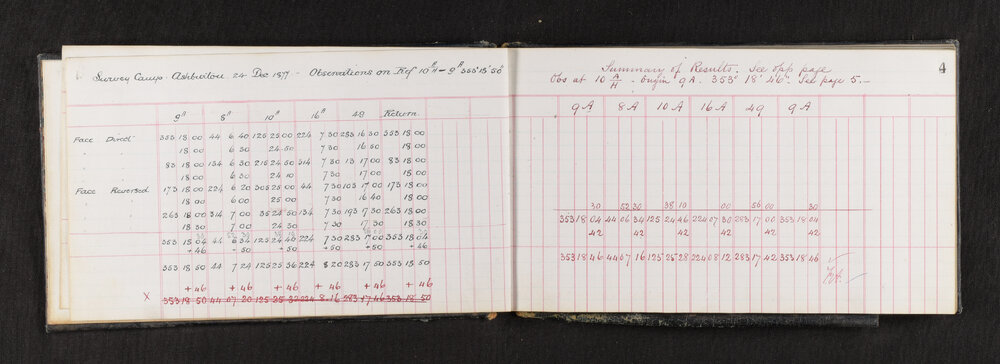 Survey Camp Ashburton 24 Dec 1877 - Observations on Ref 10 A/H - 9A 353° 18' 50"
9A 8A 10A 16A 49 Return
Face Direct 353 18 00 44 6 40 125 25 00 224 7 30 283 16 30 353 18 00
18 00 6 30 24 50 7 30 16 50 18 00
83 18 00 134 6 30 215 24 50 314 7 30 13 17 00 83 18 00
18 00 6 30 24 10 7 30 17 00 18 00
Face Reversed 173 18 00 224 6 20 305 25 00 44 7 30 103 17 00 173 18 00
18 00 6 00 25 00 7 30 16 40 18 00
263 18 00 314 7 00 35 25 50 134 7 30 193 17 30 263 18 00
18 30 7 00 24 30 7 30 17 30 18 30
353 18 04 44 6 34 125 24 46 224 7 30 283 17 00 353 18 04
+46 +50 +50 +50 +46
353 18 50 44 7 24 125 25 36 224 8 20 283 17 50 353 18 50
+46 +46 +46 +46 +46
X 353 18 50 44 07 20 125 25 32 224 8 16 283 17 46 353 18 50
4
Summary of Results. See opp page
Obs at 10 A/H - Origin 9A. 353° 18' 46". See page 5.-
9A 8A 10A 16A 49 9A
30 52 30 38 10 00 56 00 30
353 18 04 44 06 34 125 24 46 224 07 30 283 17 00 353 18 04
42 42 42 42 42 42
353 18 46 44 07 16 125 25 28 224 08 12 283 17 42 353 18 46